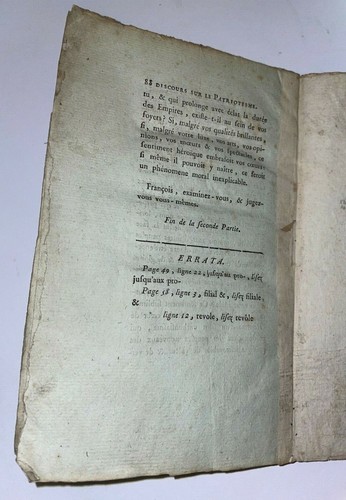 88 DISCOURS SUR LE PATRIOTISME.
tu, & qui prolonge avec éclat la durée
des Empires, existe-t-il au sein de vos
foyers? Si, malgré vos qualités brillantes,
si, malgré votre luxe, vos arts, vos opi-
nions, vos mœurs & vos spectacles, ce
sentiment héroïque embrasoit vos cœurs,
si même il pouvoit y naître, ce seroit
un phénomene moral inexplicable.
François, examinez-vous, & jugez-
vous vous-mêmes.
Fin de la seconde Partie.
ERRATA.
Page 49, ligne 22, jusqu'au pro-, lisez
jusqu'aux pro-
Page 58, ligne 3, filial &, lisez filiale,
&
ligne 12, revole, lisez